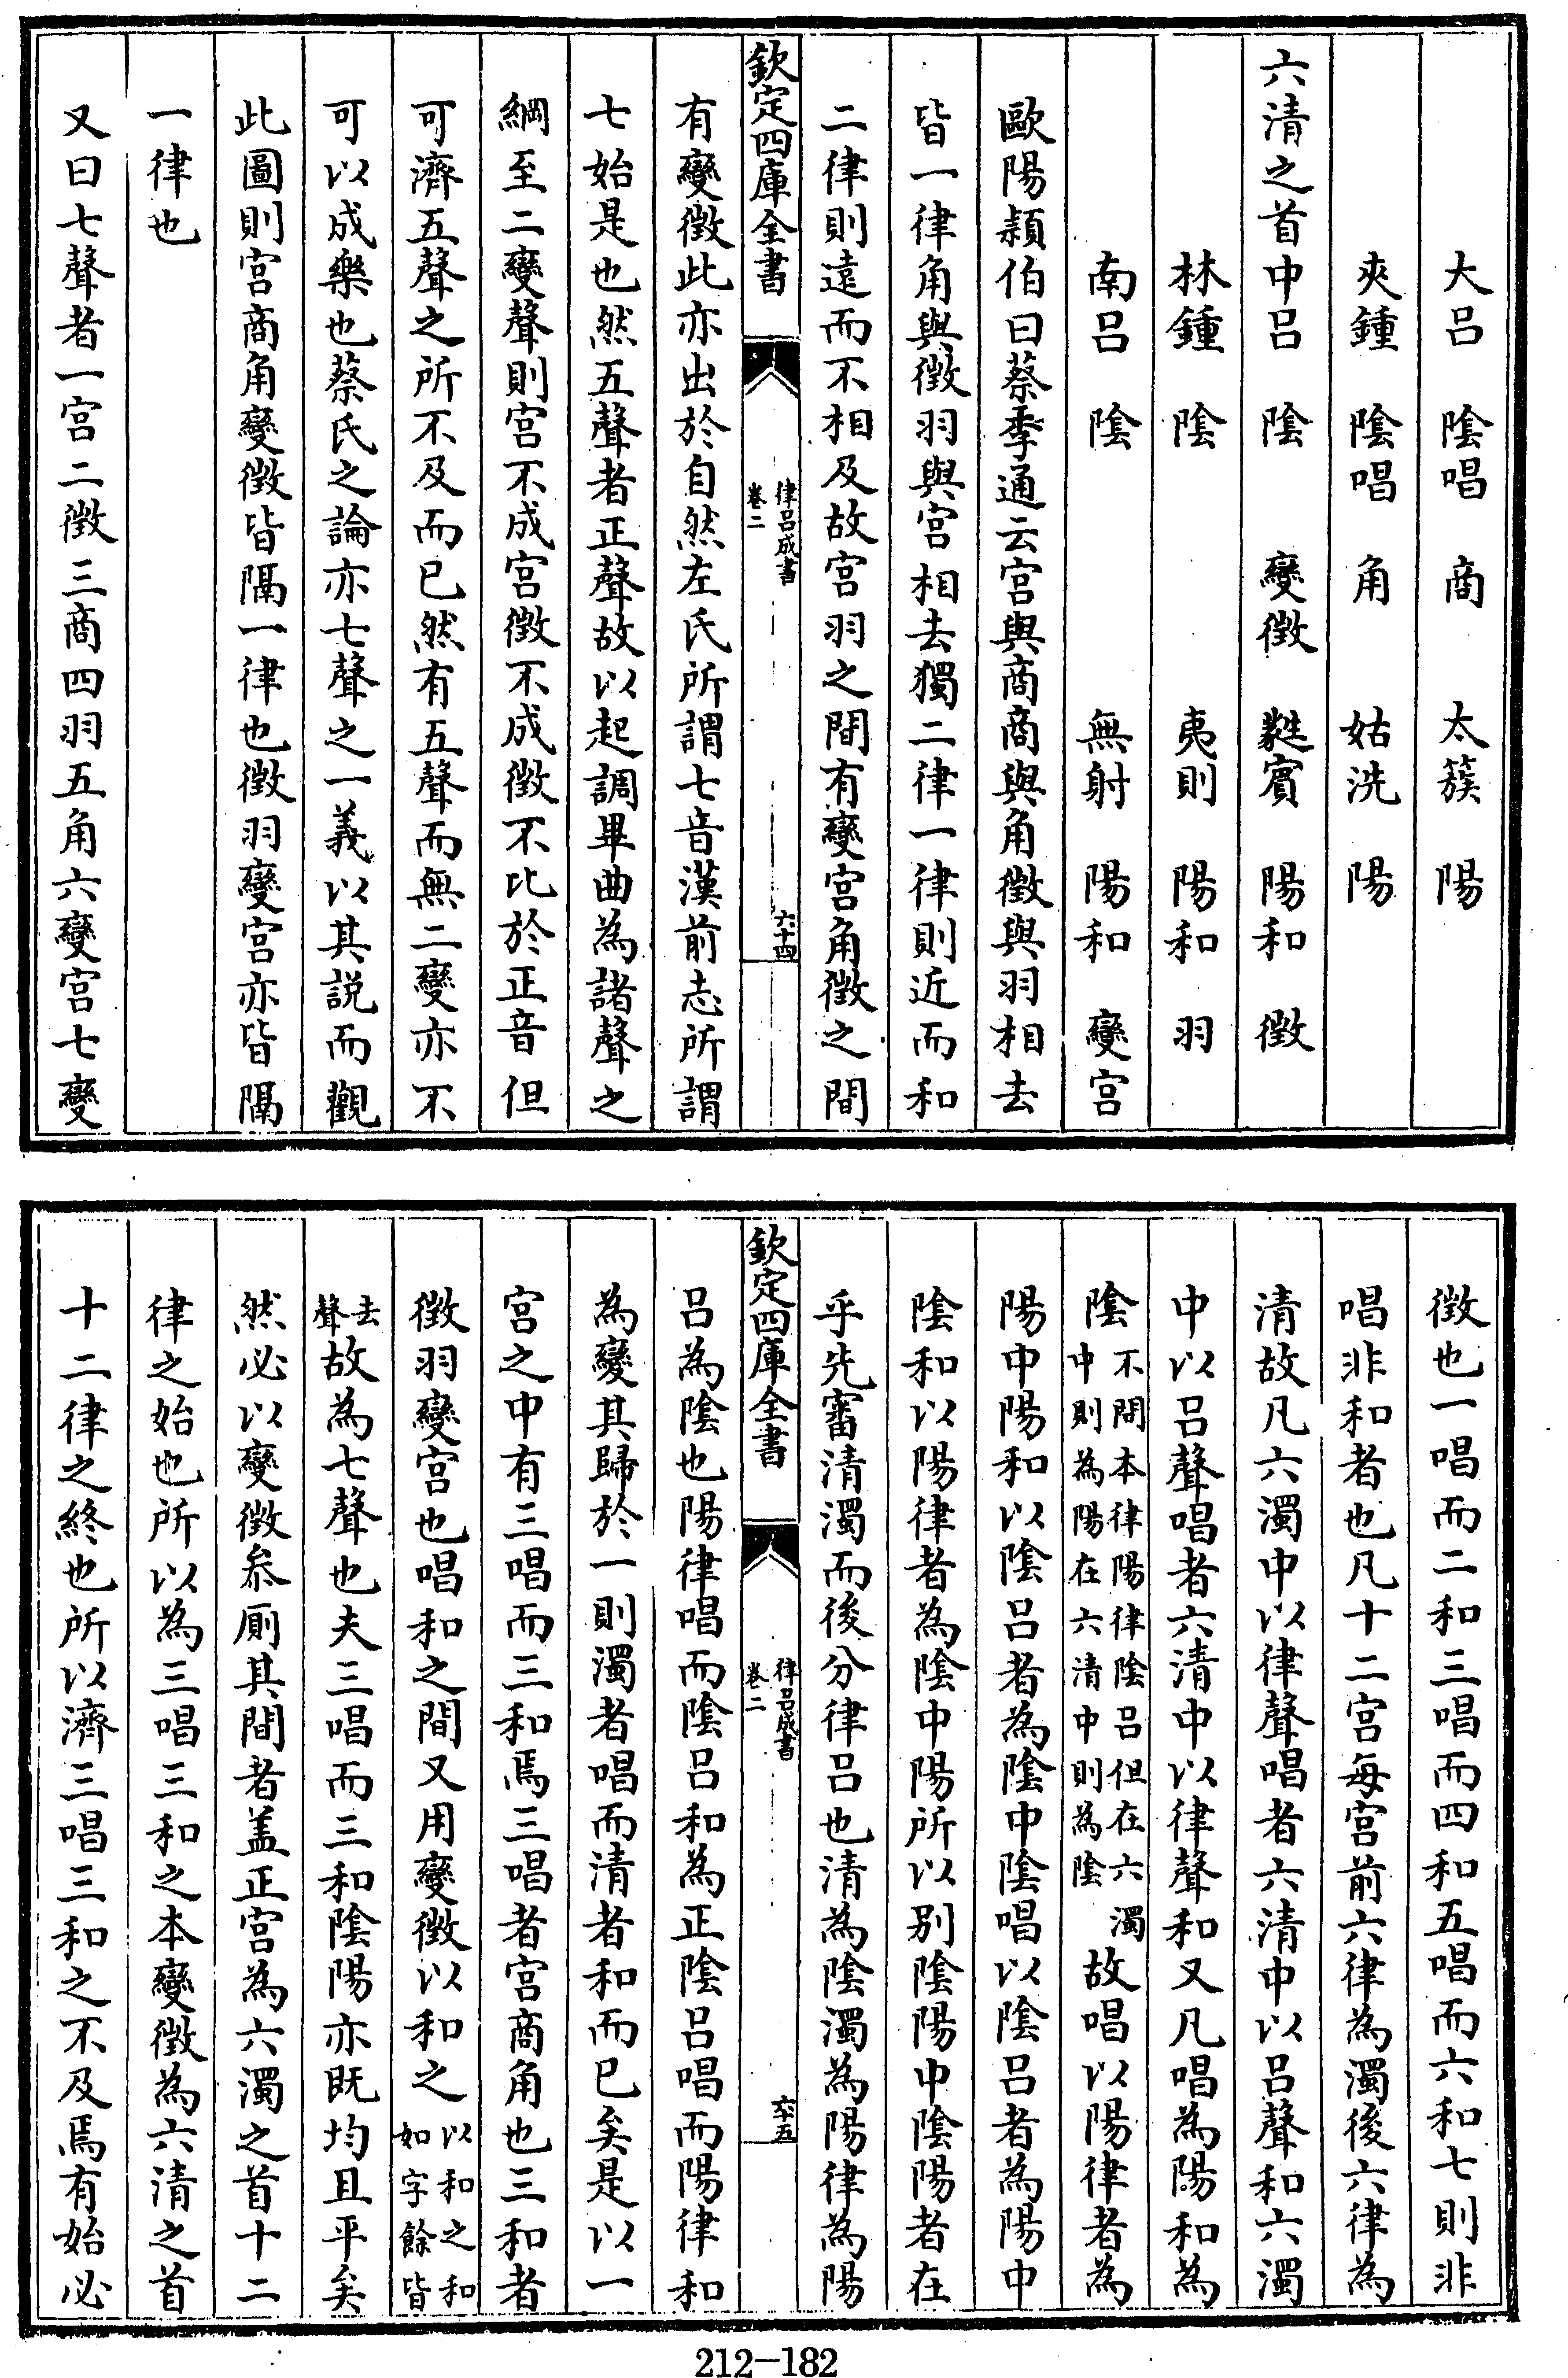 大呂　陰唱　商　太簇　陽
夾鍾　陰唱　角　姑洗　陽
六清之首中呂　陰　變徵　蕤賓　陽和　徵
林鍾　陰　夷則　陽和　羽
南呂　陰　無射　陽和　變宫
歐陽頴伯曰蔡季通云宫與商商與角徵與羽相去
皆一律角與徵羽與宫相去獨二律一律則近而和
二律則遠而不相及故宫羽之間有變宫角徵之間
欽定四庫全書
律呂成書
卷二
六十四
有變徵此亦出於自然左氏所謂七音漢前志所謂
七始是也然五聲者正聲故以起調畢曲為諸聲之
綱至二變聲則宫不成宫徵不成徵不比於正音但
可濟五聲之所不及而已然有五聲而無二變亦不
可以成樂也蔡氏之論亦七聲之一義以其説而觀
此圖則宫商角變徵皆隔一律也徵羽變宫亦皆隔
一律也
又曰七聲者一宫二徵三商四羽五角六變宫七變
徵也一唱而二和三唱而四和五唱而六和七則非
唱非和者也凡十二宫每宫前六律為濁後六律為
清故凡六濁中以律聲唱者六清中以呂聲和六濁
中以呂聲唱者六清中以律聲和又凡唱為陽和為
陰不問本律陽律陰呂但在六濁中則為陽在六清中則為陰故唱以陽律者為
陽中陽和以陰呂者為陰中陰唱以陰呂者為陽中
陰和以陽律者為陰中陽所以别陰陽中陰陽者在
乎先審清濁而後分律呂也清為陰濁為陽律為陽
欽定四庫全書
律呂成書
卷二
六十五
呂為陰也陽律唱而陰呂和為正陰呂唱而陽律和
為變其歸於一則濁者唱而清者和而已矣是以一
宫之中有三唱而三和焉三唱者宫商角也三和者
徵羽變宫也唱和之間又用變徵以和之以和之和如字餘皆
去聲故為七聲也夫三唱而三和陰陽亦既均且平矣
然必以變徵叅厠其間者盖正宫為六濁之首十二
律之始也所以為三唱三和之本變徵為六清之首
十二律之終也所以濟三唱三和之不及焉有始必
212-182